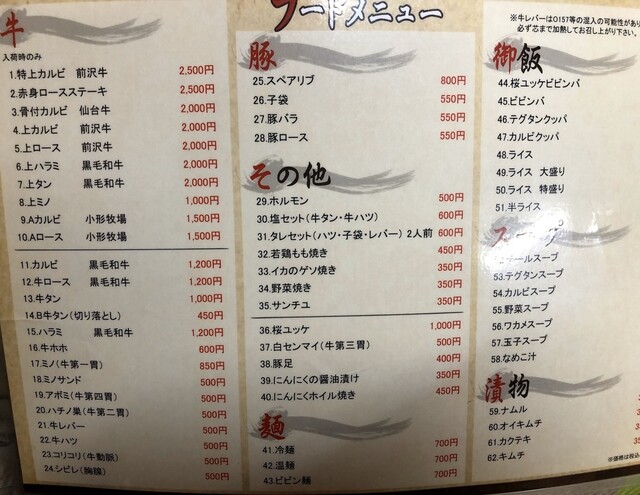 フードメニュー
牛
入荷時のみ
1.特上カルビ 前沢牛 2,500円
2.赤身ロースステーキ 2,500円
3.骨付カルビ 仙台牛 2,000円
4.上カルビ 前沢牛 2,000円
5.上ロース 前沢牛 2,000円
6.上ハラミ 黒毛和牛 2,000円
7.上タン 黒毛和牛 2,000円
8.上ミノ 1,000円
9.Aカルビ 小形牧場 1,500円
10.Aロース 小形牧場 1,500円
11.カルビ 黒毛和牛 1,200円
12.牛ロース 黒毛和牛 1,200円
13.牛タン 1,000円
14.B牛タン(切り落とし) 450円
15.ハラミ 黒毛和牛 1,200円
16.牛ホホ 600円
17.ミノ(牛第一胃) 850円
18.ミノサンド 500円
19.アボミ(牛第四胃) 500円
20.ハチノ巣(牛第二胃) 500円
21.牛レバー 500円
22.牛ハツ 500円
23.コリコリ(牛動脈) 500円
24.シビレ(胸腺) 500円
豚
25.スペアリブ 800円
26.子袋 550円
27.豚バラ 550円
28.豚ロース 550円
その他
29.ホルモン 500円
30.塩セット(牛タン・牛ハツ) 600円
31.タレセット(ハツ・子袋・レバー) 2人前 600円
32.若鶏もも焼き 450円
33.イカのゲソ焼き 350円
34.野菜焼き 350円
35.サンチュ 350円
36.桜ユッケ 1,000円
37.白センマイ(牛第三胃) 500円
38.豚足 400円
39.にんにくの醤油漬け 350円
40.にんにくホイル焼き 450円
麺
41.冷麺 700円
42.温麺 700円
43.ビビン麺 700円
※牛レバーはO157等の混入の可能性があり
必ず芯まで加熱してお召し上がり下さい。
御飯
44.桜ユッケビビンバ
45.ビビンバ
46.テグタンクッパ
47.カルビクッパ
48.ライス
49.ライス 大盛り
50.ライス 特盛り
51.半ライス
スープ
テールスープ
53.テグタンスープ
54.カルビスープ
55.野菜スープ
56.ワカメスープ
57.玉子スープ
58.なめこ汁
漬物
59.ナムル
60.オイキムチ
61.カクテキ
62.キムチ
※価格は税込